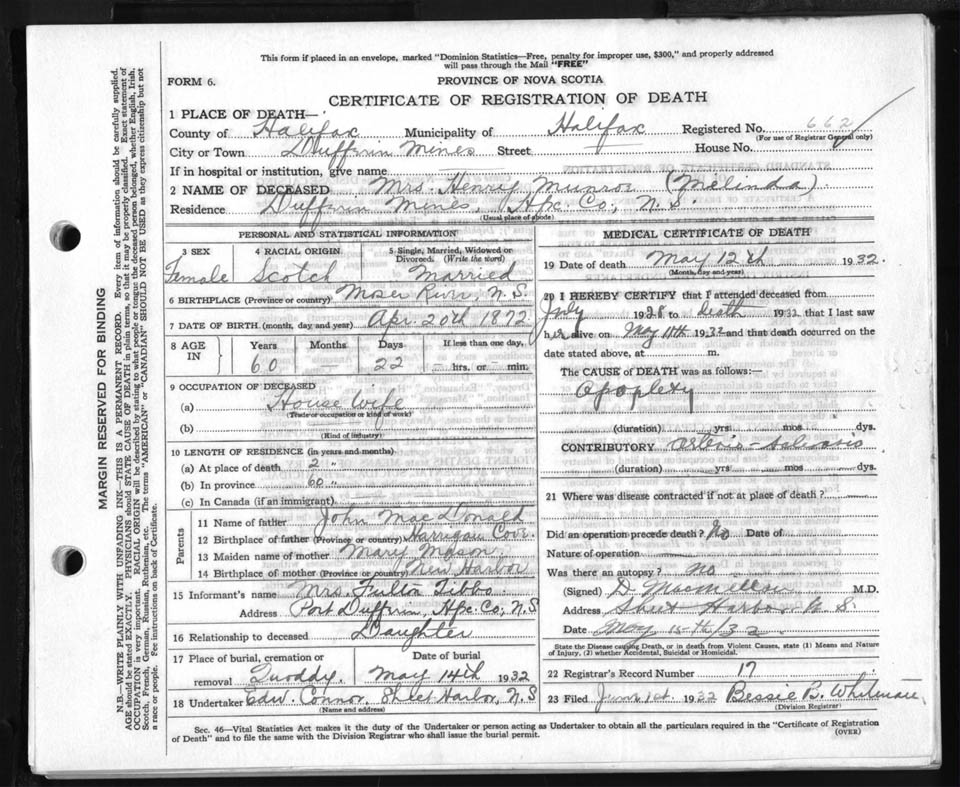 This form if placed in an envelope, marked "Dominion Statistics—Free, penalty for improper use, $300," and properly addressed
will pass through the Mail "FREE"
FORM 6.
PROVINCE OF NOVA SCOTIA
CERTIFICATE OF REGISTRATION OF DEATH
1 PLACE OF DEATH—
County of Halifax Municipality of Halifax Registered No. 662
(For use of Registrar General only)
City or Town Dufferin Mines Street House No.
If in hospital or institution, give name
2 NAME OF DECEASED Mrs. Henry Munroe (Melinda)
Residence Dufferin Mines, Hfx. Co., N.S.
(Usual place of abode)
PERSONAL AND STATISTICAL INFORMATION
3 SEX 4 RACIAL ORIGIN 5 Single, Married, Widowed or
Divorced. (Write the word)
Female Scotch Married
6 BIRTHPLACE (Province or country) Moser River, N.S.
7 DATE OF BIRTH (month, day and year) Apr. 20th 1872
8 AGE IN Years Months Days If less than one day,
60 — 22 — hrs. or — min.
9 OCCUPATION OF DECEASED
(a) House Wife
(Trade or occupation or kind of work)
(b)
(Kind of industry)
10 LENGTH OF RESIDENCE (in years and months)
(a) At place of death 2 "
(b) In province 60 "
(c) In Canada (if an immigrant)
Parents
11 Name of father John MacDonald
12 Birthplace of father (Province or country) Harrigan Cove
13 Maiden name of mother Mary Mason
14 Birthplace of mother (Province or country) New Harbor
15 Informant's name Mrs. Fulton Tibbo
Address Port Dufferin, Hfx. Co., N.S
16 Relationship to deceased Daughter
17 Place of burial, cremation or Date of burial
removal Quoddy. May 14th 1932
18 Undertaker Edw. Connor, Sheet Harbor, N.S
(Name and address)
MEDICAL CERTIFICATE OF DEATH
19 Date of death May 12th 1932.
(Month, day and year)
20 I HEREBY CERTIFY that I attended deceased from
July 1928 to death 1932 that I last saw
her alive on May 11th 1932 and that death occurred on the
date stated above, at m.
The CAUSE of DEATH was as follows:—
Apoplexy
(duration) yrs mos dys.
CONTRIBUTORY Arterio-sclerosis
(duration) yrs mos dys.
21 Where was disease contracted if not at place of death?
Did an operation precede death? No Date of
Nature of operation
Was there an autopsy? no
(Signed) D. M.D.
Address Sheet Harbor N.S.
Date May 15th/32
State the Disease causing Death, or in death from Violent Causes, state (1) Means and
Nature of Injury, (2) whether Accidental, Suicidal or Homicidal.
22 Registrar's Record Number 17
23 Filed June 1st 1932 Bessie B. Whitman
(Division Registrar)
Sec. 46—Vital Statistics Act makes it the duty of the Undertaker or person acting as Undertaker to obtain all the particulars required in the "Certificate of Registration
of Death" and to file the same with the Division Registrar who shall issue the burial permit.
(OVER)
MARGIN RESERVED FOR BINDING
N.B.—WRITE PLAINLY WITH UNFADING INK—THIS IS A PERMANENT RECORD. Every item of information should be carefully supplied.
AGE should be stated EXACTLY. PHYSICIANS should STATE CAUSE OF DEATH in plain terms, so that it may be properly classified. Exact statement of
OCCUPATION is very important. RACIAL ORIGIN will be described by stating to what people or tongue the deceased person belonged, whether English, Irish,
Scotch, French, German, Russian, Ruthenian, etc. The terms "AMERICAN" or "CANADIAN" SHOULD NOT BE USED as they express citizenship but not
a race or people. See instructions on back of Certificate.